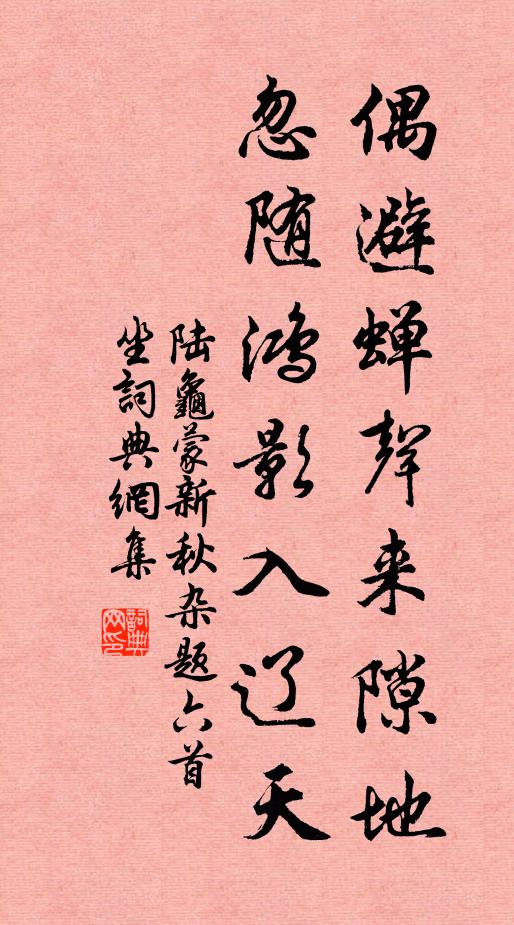 偶避蝉聲来隙地
忽随鴻影入辽天
陆龜蒙新秋杂题六首
坐詞典網集
詞典网印